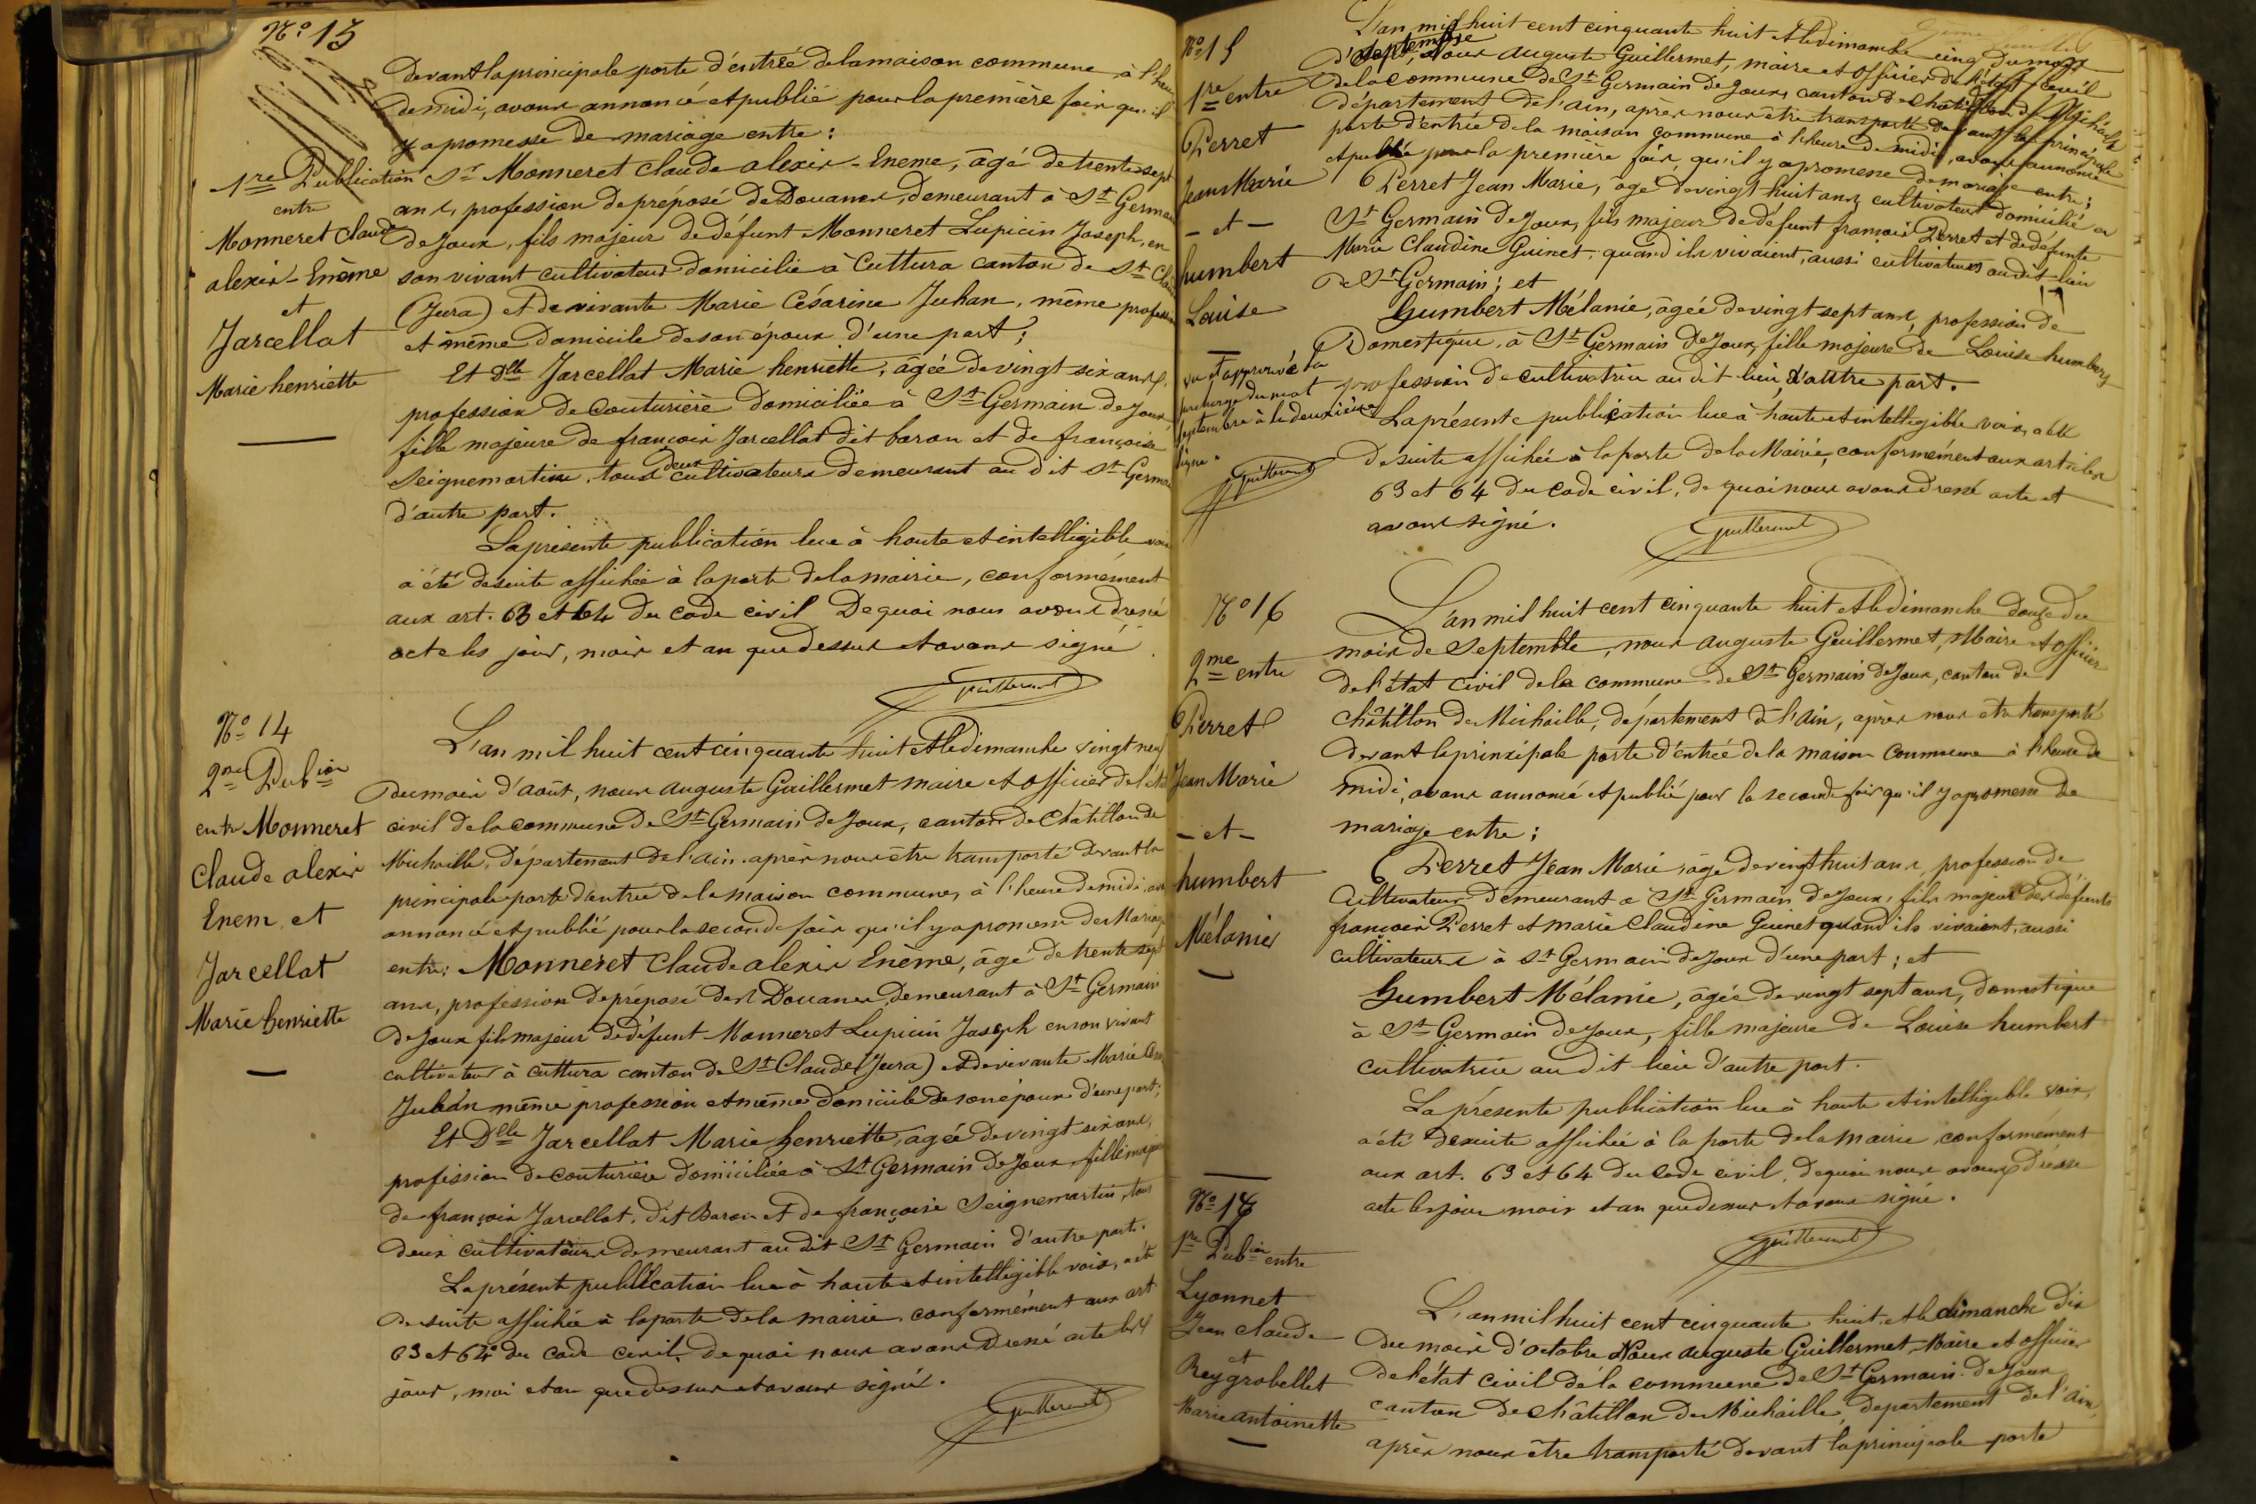 N° 13
devant la principale porte d'entrée de la maison commune, à l'heure
de midi, avons annoncé et publié pour la première fois qu'il
y a promesse de mariage entre :
1re Publication
entre
Monneret Claude
alexis-Enème
et
Jarcellat
Marie henriette
Sr Monneret Claude alexis-Eneme, âgé de trente sept
ans, profession de préposé de Douanes, demeurant à St Germain
de Joux, fils majeur de défunt Monneret Lupicin Joseph, en
son vivant cultivateur domicilié à Cuttura canton de St Claude
(Jura) et de vivante Marie Césarine Juhan, même profession
et même domicile de son époux d'une part ;
Et Dlle Jarcellat Marie henriette, âgée de vingt six ans,
profession de couturière domiciliée à St Germain de Joux,
fille majeure de françois Jarcellat dit baron et de françoise
Seignemartin, tous deux cultivateurs demeurant au dit St Germain
d'autre part.
La présente publication lue à haute et intelligible voix
a été desuite affichée à la porte de la mairie, conformément
aux art. 63 et 64 du code civil De quoi nous avons dressé
acte les jour, mois et an que dessus et avons signé.
Guillermet
N° 14
2me Pubion
entre Monneret
Claude alexis
Enem, et
Jarcellat
Marie henriette
L'an mil huit cent cinquante huit et le dimanche vingt neuf
du mois d'août, nous auguste Guillermet maire et officier de l'état
civil de la commune de St Germain de Joux, canton de Châtillon de
Michaille, département de l'ain, après nous être transporté devant la
principale porte d'entrée de la maison commune, à l'heure de midi, avons
annoncé et publié pour la seconde fois qu'il y a promesse de Mariage
entre: Monneret Claude alexis Enème, âgé de trente sept
ans, profession de préposé des Douanes, demeurant à St Germain
de Joux fils majeur de défunt Monneret Lupicin Joseph en son vivant
cultivateur à cuttura canton de St Claude (Jura) et de vivante Marie
Juhan même profession et même domicile de son époux d'une part ;
Et Dlle Jarcellat Marie henriette, âgée de vingt six ans,
profession de couturière domiciliée à St Germain de Joux fille majeure
de françois Jarcellat, dit Baron et de françoise Seignemartin, tous
deux cultivateurs demeurant au dit St Germain d'autre part.
La présente publication lue à haute et intelligible voix, a été
desuite affichée à la porte de la mairie conformément aux art
63 et 64 du code civil, de quoi nous avons dressé acte les
jour, moi et an que dessus et avons signé.
Guillermet
N° 15
1re entre
Perret
Jean Marie
- et -
humbert
Louise
L'an mil huit cent cinquante huit et le dimanche cinq du mois
de septembre, nous auguste Guillermet, maire et officier de l'état civil
de la commune de St Germain de Joux, canton de Châtillon de Michaille
département de l'ain, après nous être transporté devant la principale
porte d'entrée de la maison commune à l'heure de midi, avons annoncé
et publié pour la première fois, qu'il y a promesse de mariage entre ;
Perret Jean Marie, âgé de vingt huit ans, cultivateur domicilié à
St Germain de Joux, fils majeur de défunt françois Perret et de défunte
Marie Claudine Guinet, quand ils vivaient, aussi cultivateurs au dit lieu
de St Germain ; et
humbert Mélanie, âgée de vingt sept ans, profession de
Domestique, à St Germain de Joux, fille majeure de Louise humbert
profession de cultivatrice au dit lieu, d'autre part.
vu et approuvé la
surcharge du mot
septembre à la deuxième
ligne.
Guillermet
La présente publication lue à haute et intelligible voix, a été
desuite affichée à la porte de la Mairie, conformément aux articles
63 et 64 du code civil, de quoi nous avons dressé acte et
avons signé.
Guillermet
N° 16
2me entre
Perret
Jean Marie
- et -
humbert
Mélanie
L'an mil huit cent cinquante huit et le dimanche douze du
mois de Septembre, nous auguste Guillermet, Maire et officier
de l'état civil de la commune de St Germain de Joux, canton de
Châtillon de Michaille, département de l'ain, après nous être transporté
devant la principale porte d'entrée de la maison commune à l'heure de
midi, avons annoncé et publié pour la seconde fois qu'il y a promesse de
mariage entre ;
Perret Jean Marie, âgé de vingt huit ans, profession de
Cultivateur demeurant à St Germain de Joux, fils majeur des défunts
françois Perret et marie Claudine Guinet quand ils vivaient, aussi
cultivateurs à St Germain de Joux d'une part ; et
humbert Mélanie, âgée de vingt sept ans, domestique
à St Germain de Joux, fille majeure de Louise humbert
cultivatrice au dit lieu d'autre part.
La présente publication lue à haute et intelligible voix,
a été desuite affichée à la porte de la mairie conformément
aux art. 63 et 64 du code civil, de quoi nous avons dressé
acte les jour mois et an que dessus et avons signé.
Guillermet
N° 17
1re Pubion entre
Lyonnet
Jean claude
et
Reygrobellet
Marie antoinette
L'an mil huit cent cinquante huit et le dimanche dix
du mois d'octobre Nous auguste Guillermet, Maire et officier
de l'état civil de la commune de St Germain de Joux
canton de Châtillon de Michaille, département de l'ain,
après nous être transporté devant la principale porte